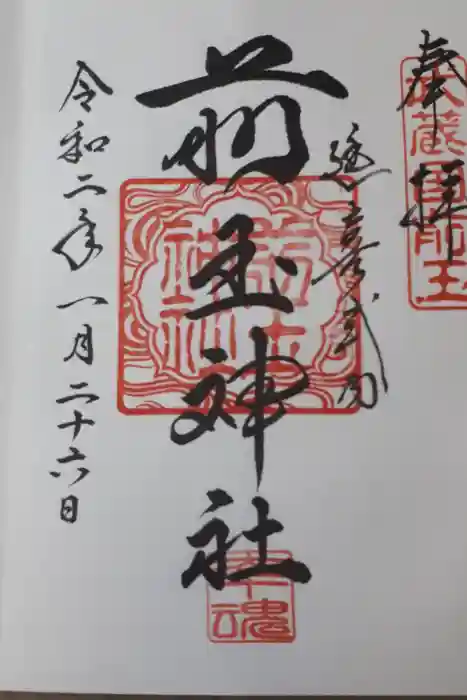 奉拝
武蔵国前玉
延喜式内
前玉神社
前玉神社
幸魂
令和二年一月二十六日